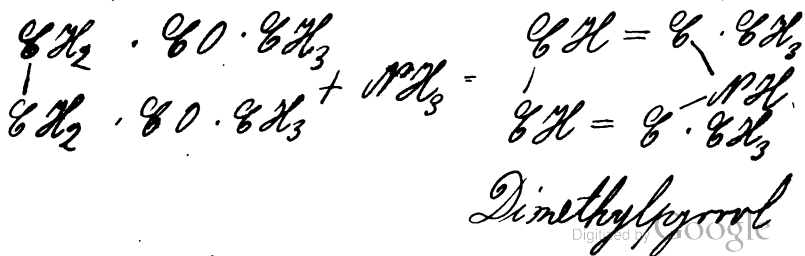 CH₂ · CO · CH₃ + NH₃ = CH = C · CH₃
NH
CH₂ · CO · CH₃ CH = C · CH₃
Dimethylpyrrol
Digitized by Google